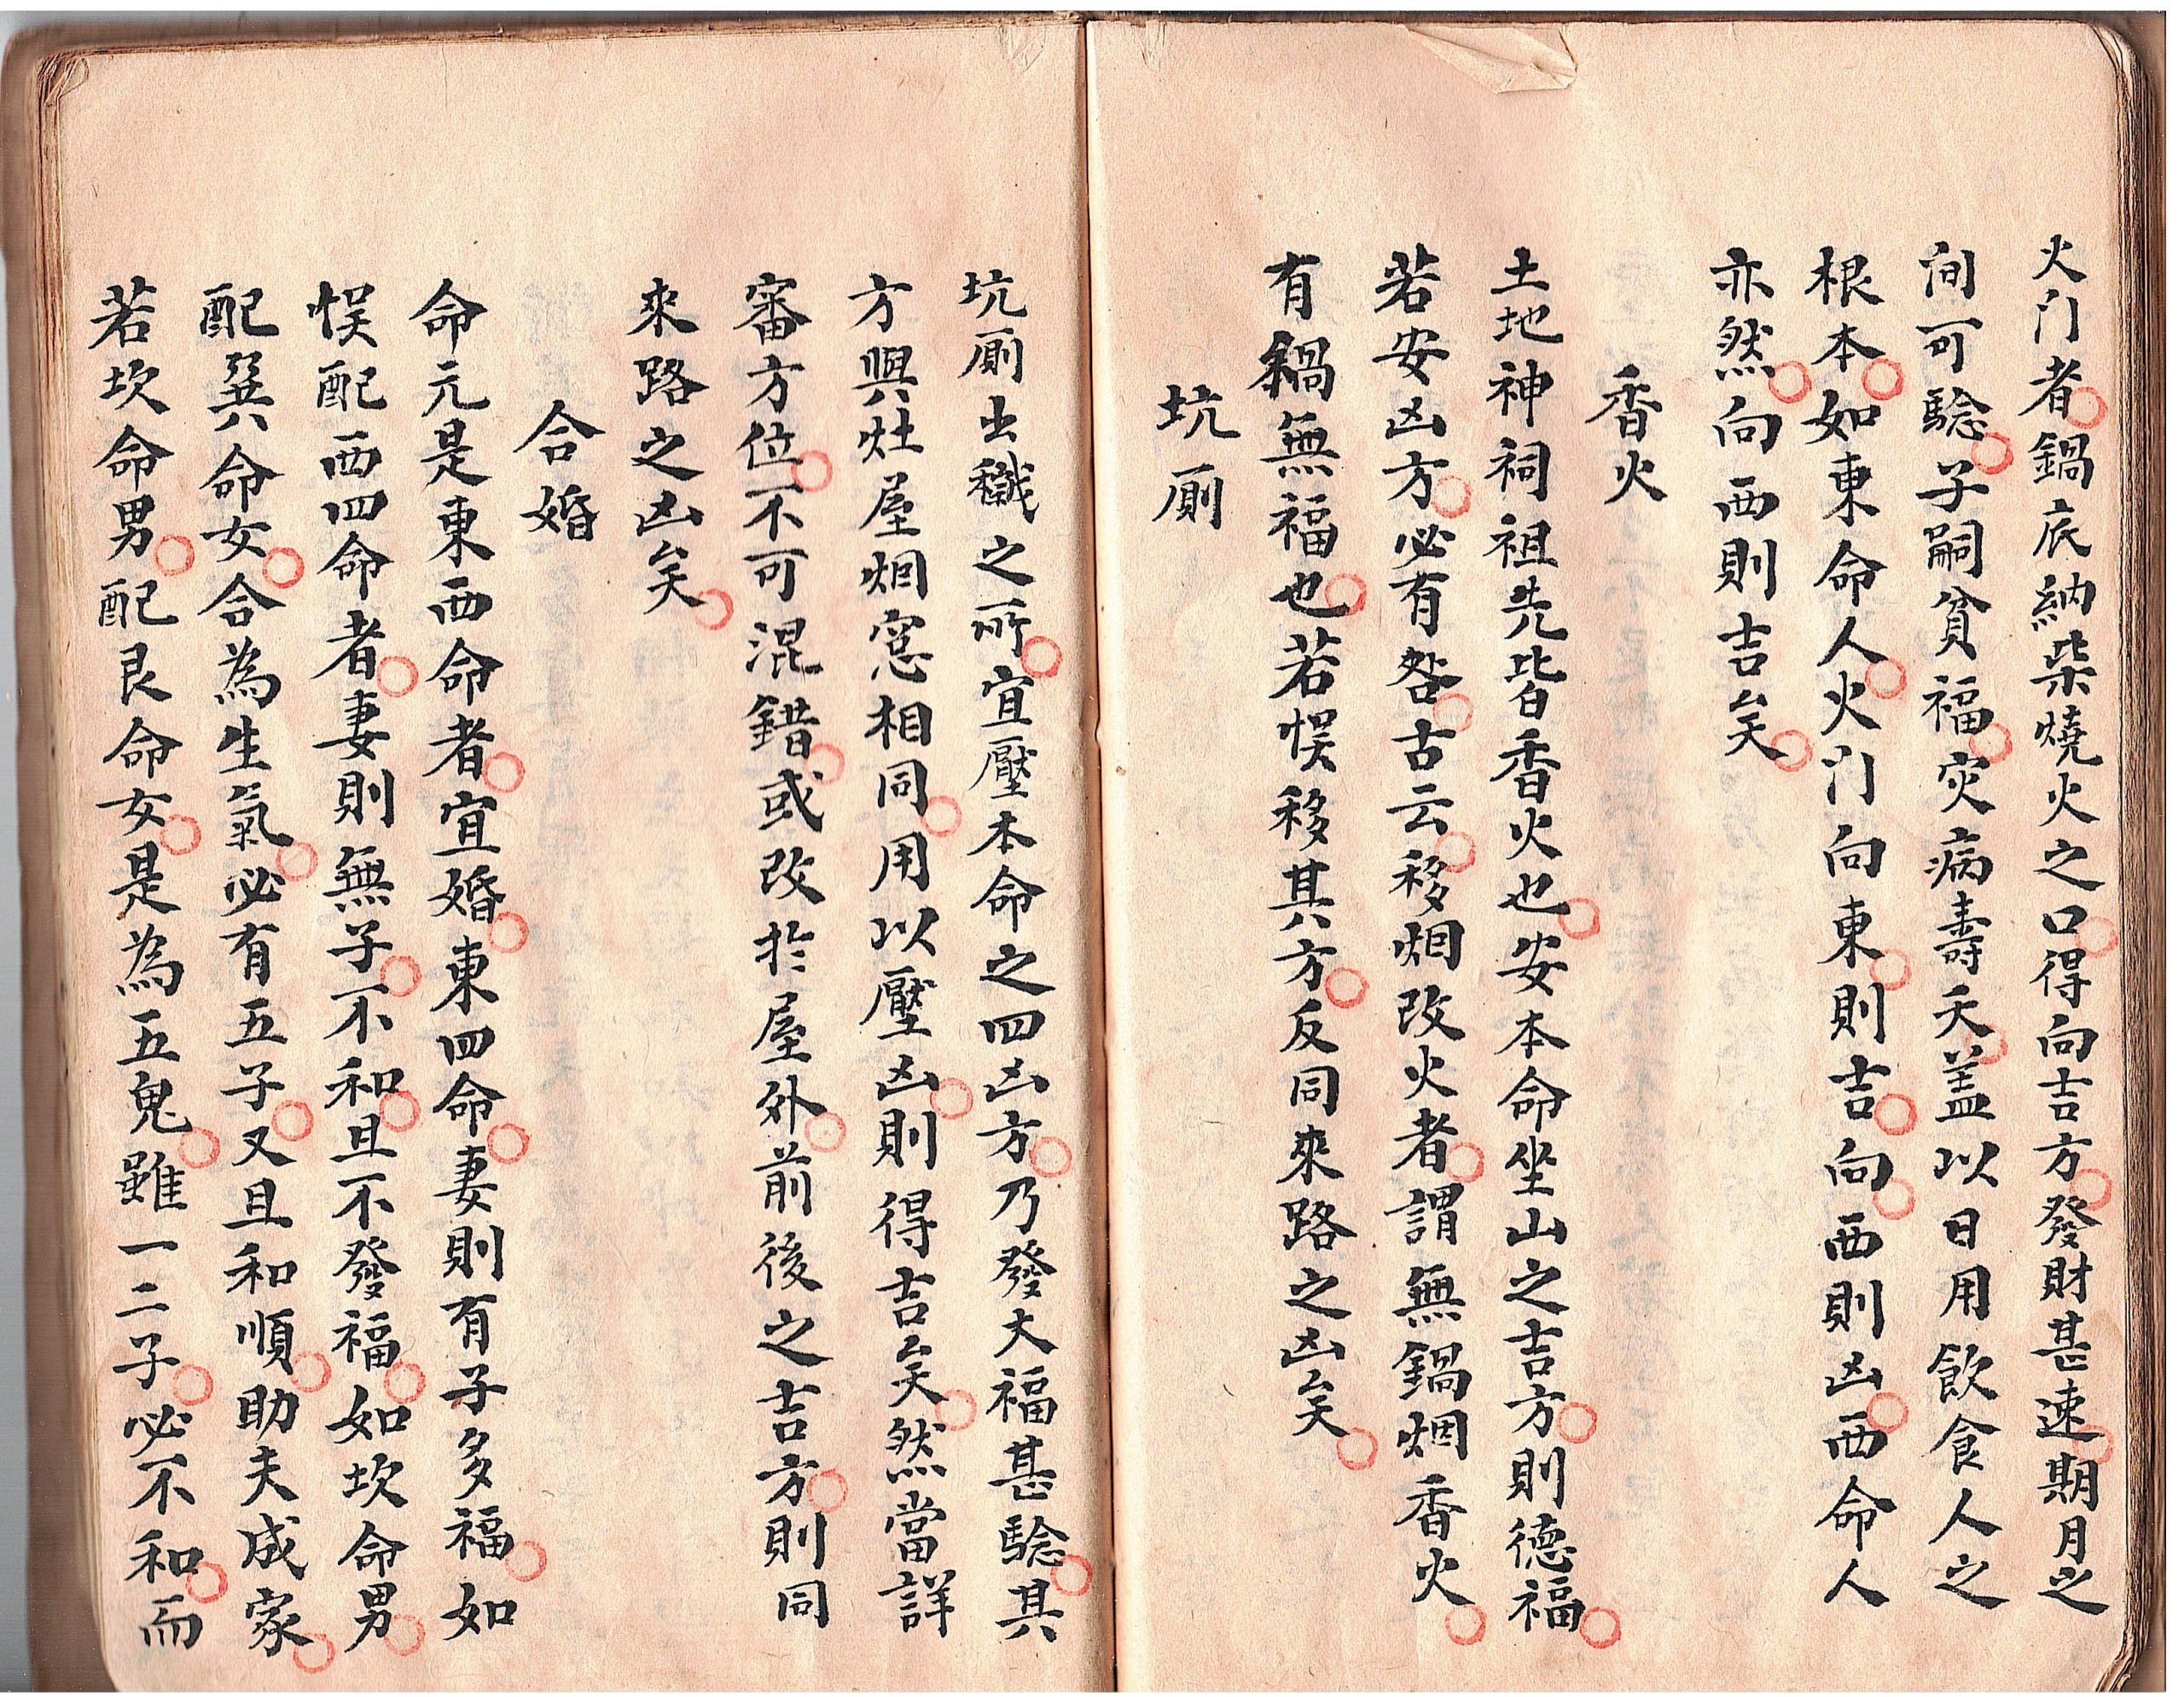 火门者鍋底納柴燒火之口得向吉方發財甚速期月之
间可騐子嗣貧福灾病壽夭盖以日用飲食人之
根本如東命人火门向東則吉向西則凶西命人
亦然向西則吉矣
香火
土地神祠祖先皆香火也安本命坐山之吉方則德福
若安凶方必有咎古云移烟改火者謂無鍋烟香火
有鍋無福也若悮移其方反同來路之凶矣
坑厠
坑厠出穢之所宜壓本命之四凶方乃發大福甚騐其
方與灶屋烟窓相同用以壓凶則得吉矣然當詳
審方位不可混錯或改於屋外前後之吉方則同
來路之凶矣
合婚
命元是東西命者宜婚東四命妻則有子多福如
悮配西四命者妻則無子不和且不發福如坎命男
配巽命女合為生氣必有五子又且和順助夫成家
若坎命男配艮命女是為五鬼雖一二子必不和而